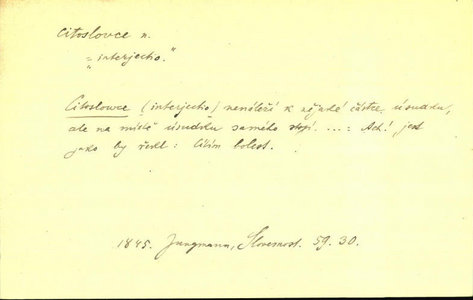 citoslovce n.
„interjecho."
Citoslowce (interjecho) nenáleží k nějaké částce úsudku,
ale na místě úsudku samého stojí. ...: Ach! jest
jako by řekl: Cítím bolest.
1845. Jungmann, Slovesnost. 59. 30.